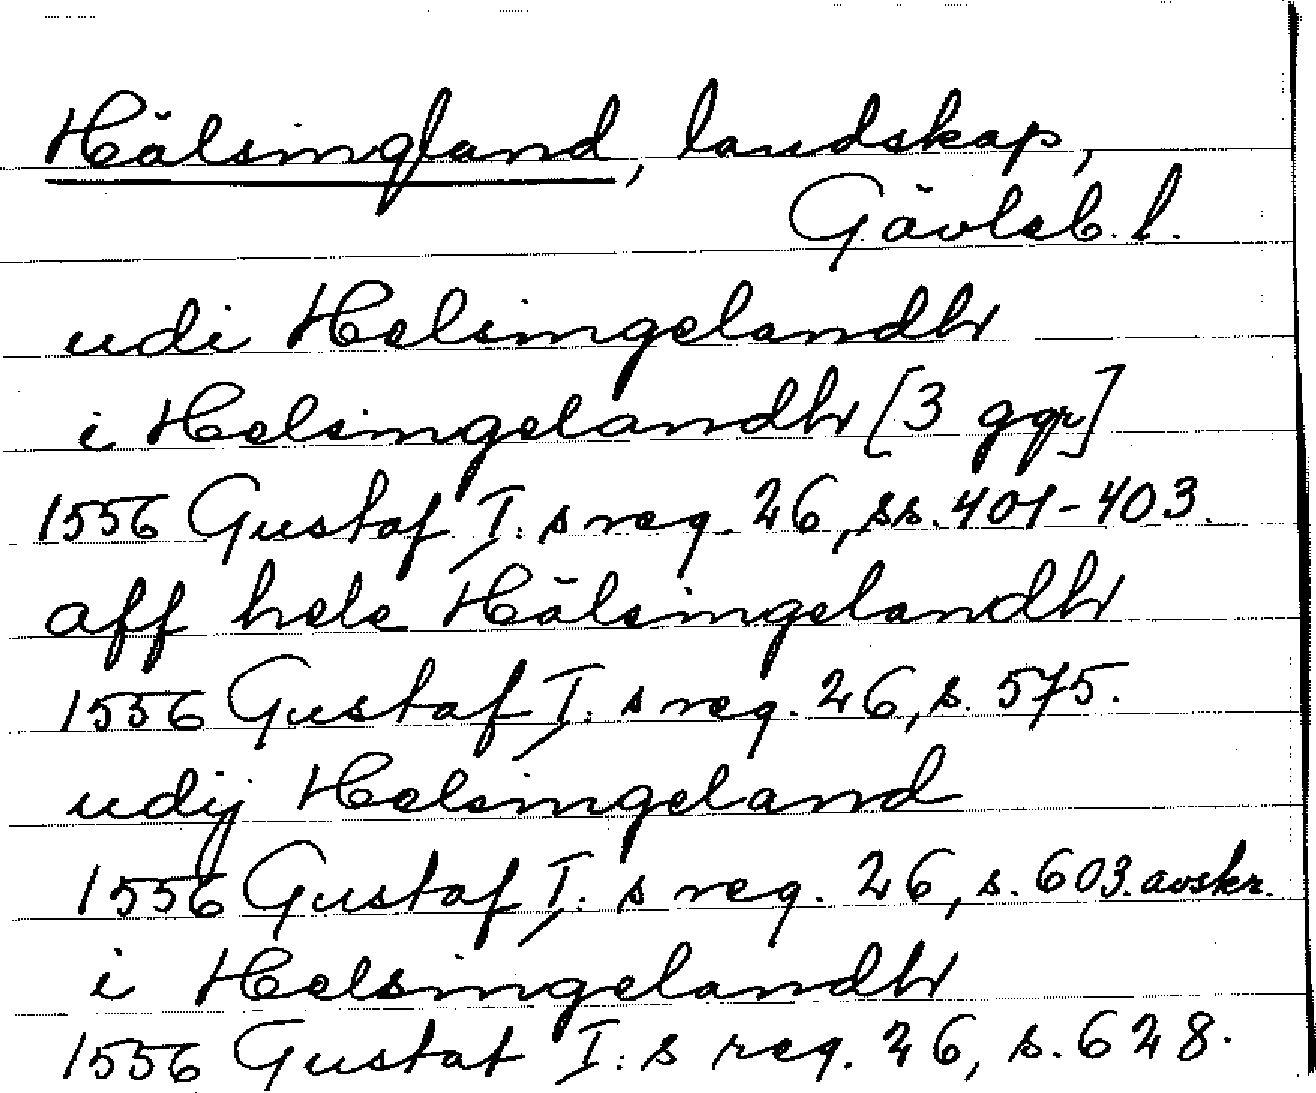 Hälsingland, landskap,
Gävleb. l.
udi Helsingelandh
i Helsingelandh [3 ggr]
1556 Gustaf I:s reg. 26, ss. 401-403.
aff hele Hälsingelandh
1556 Gustaf I:s reg. 26, s. 575.
udij Helsingeland
1556 Gustaf I:s reg. 26, s. 603. avskr.
i Helsingelandh
1556 Gustaf I:s reg. 26, s. 628.